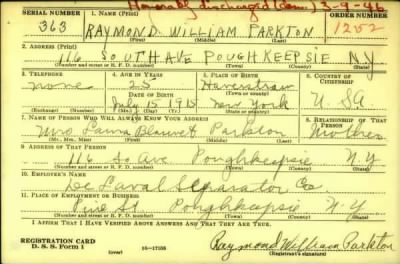 Honorably discharged (Dem.) 2-9-46
SERIAL NUMBER 1. NAME (Print) ORDER NUMBER
363 RAYMOND WILLIAM PARKTON 1252
(First) (Middle) (Last)
2. ADDRESS (Print)
116 SOUTH AVE POUGHKEEPSIE NY
(Number and street or R. F. D. number) (Town) (County) (State)
3. TELEPHONE 4. AGE IN YEARS 5. PLACE OF BIRTH 6. COUNTRY OF CITIZENSHIP
none 25 Haverstraw
DATE OF BIRTH (Town or county)
July 15 1915 New York U SA
(Exchange) (Number) (Mo.) (Day) (Yr.) (State or country)
7. NAME OF PERSON WHO WILL ALWAYS KNOW YOUR ADDRESS 8. RELATIONSHIP OF THAT PERSON
Mrs Laura Blauvelt Parkton Mother
(Mr., Mrs., Miss) (First) (Middle) (Last)
9. ADDRESS OF THAT PERSON
116 So Ave Poughkeepsie N.Y
(Number and street or R. F. D. number) (Town) (County) (State)
10. EMPLOYER'S NAME
De Laval Separator Co
11. PLACE OF EMPLOYMENT OR BUSINESS
Pine St. Poughkeepsie N.Y
(Number and street or R. F. D. number) (Town) (County) (State)
I AFFIRM THAT I HAVE VERIFIED ABOVE ANSWERS AND THAT THEY ARE TRUE.
REGISTRATION CARD
D. S. S. Form 1 (over) 16—17105 Raymond William Parkton
(Registrant's signature)